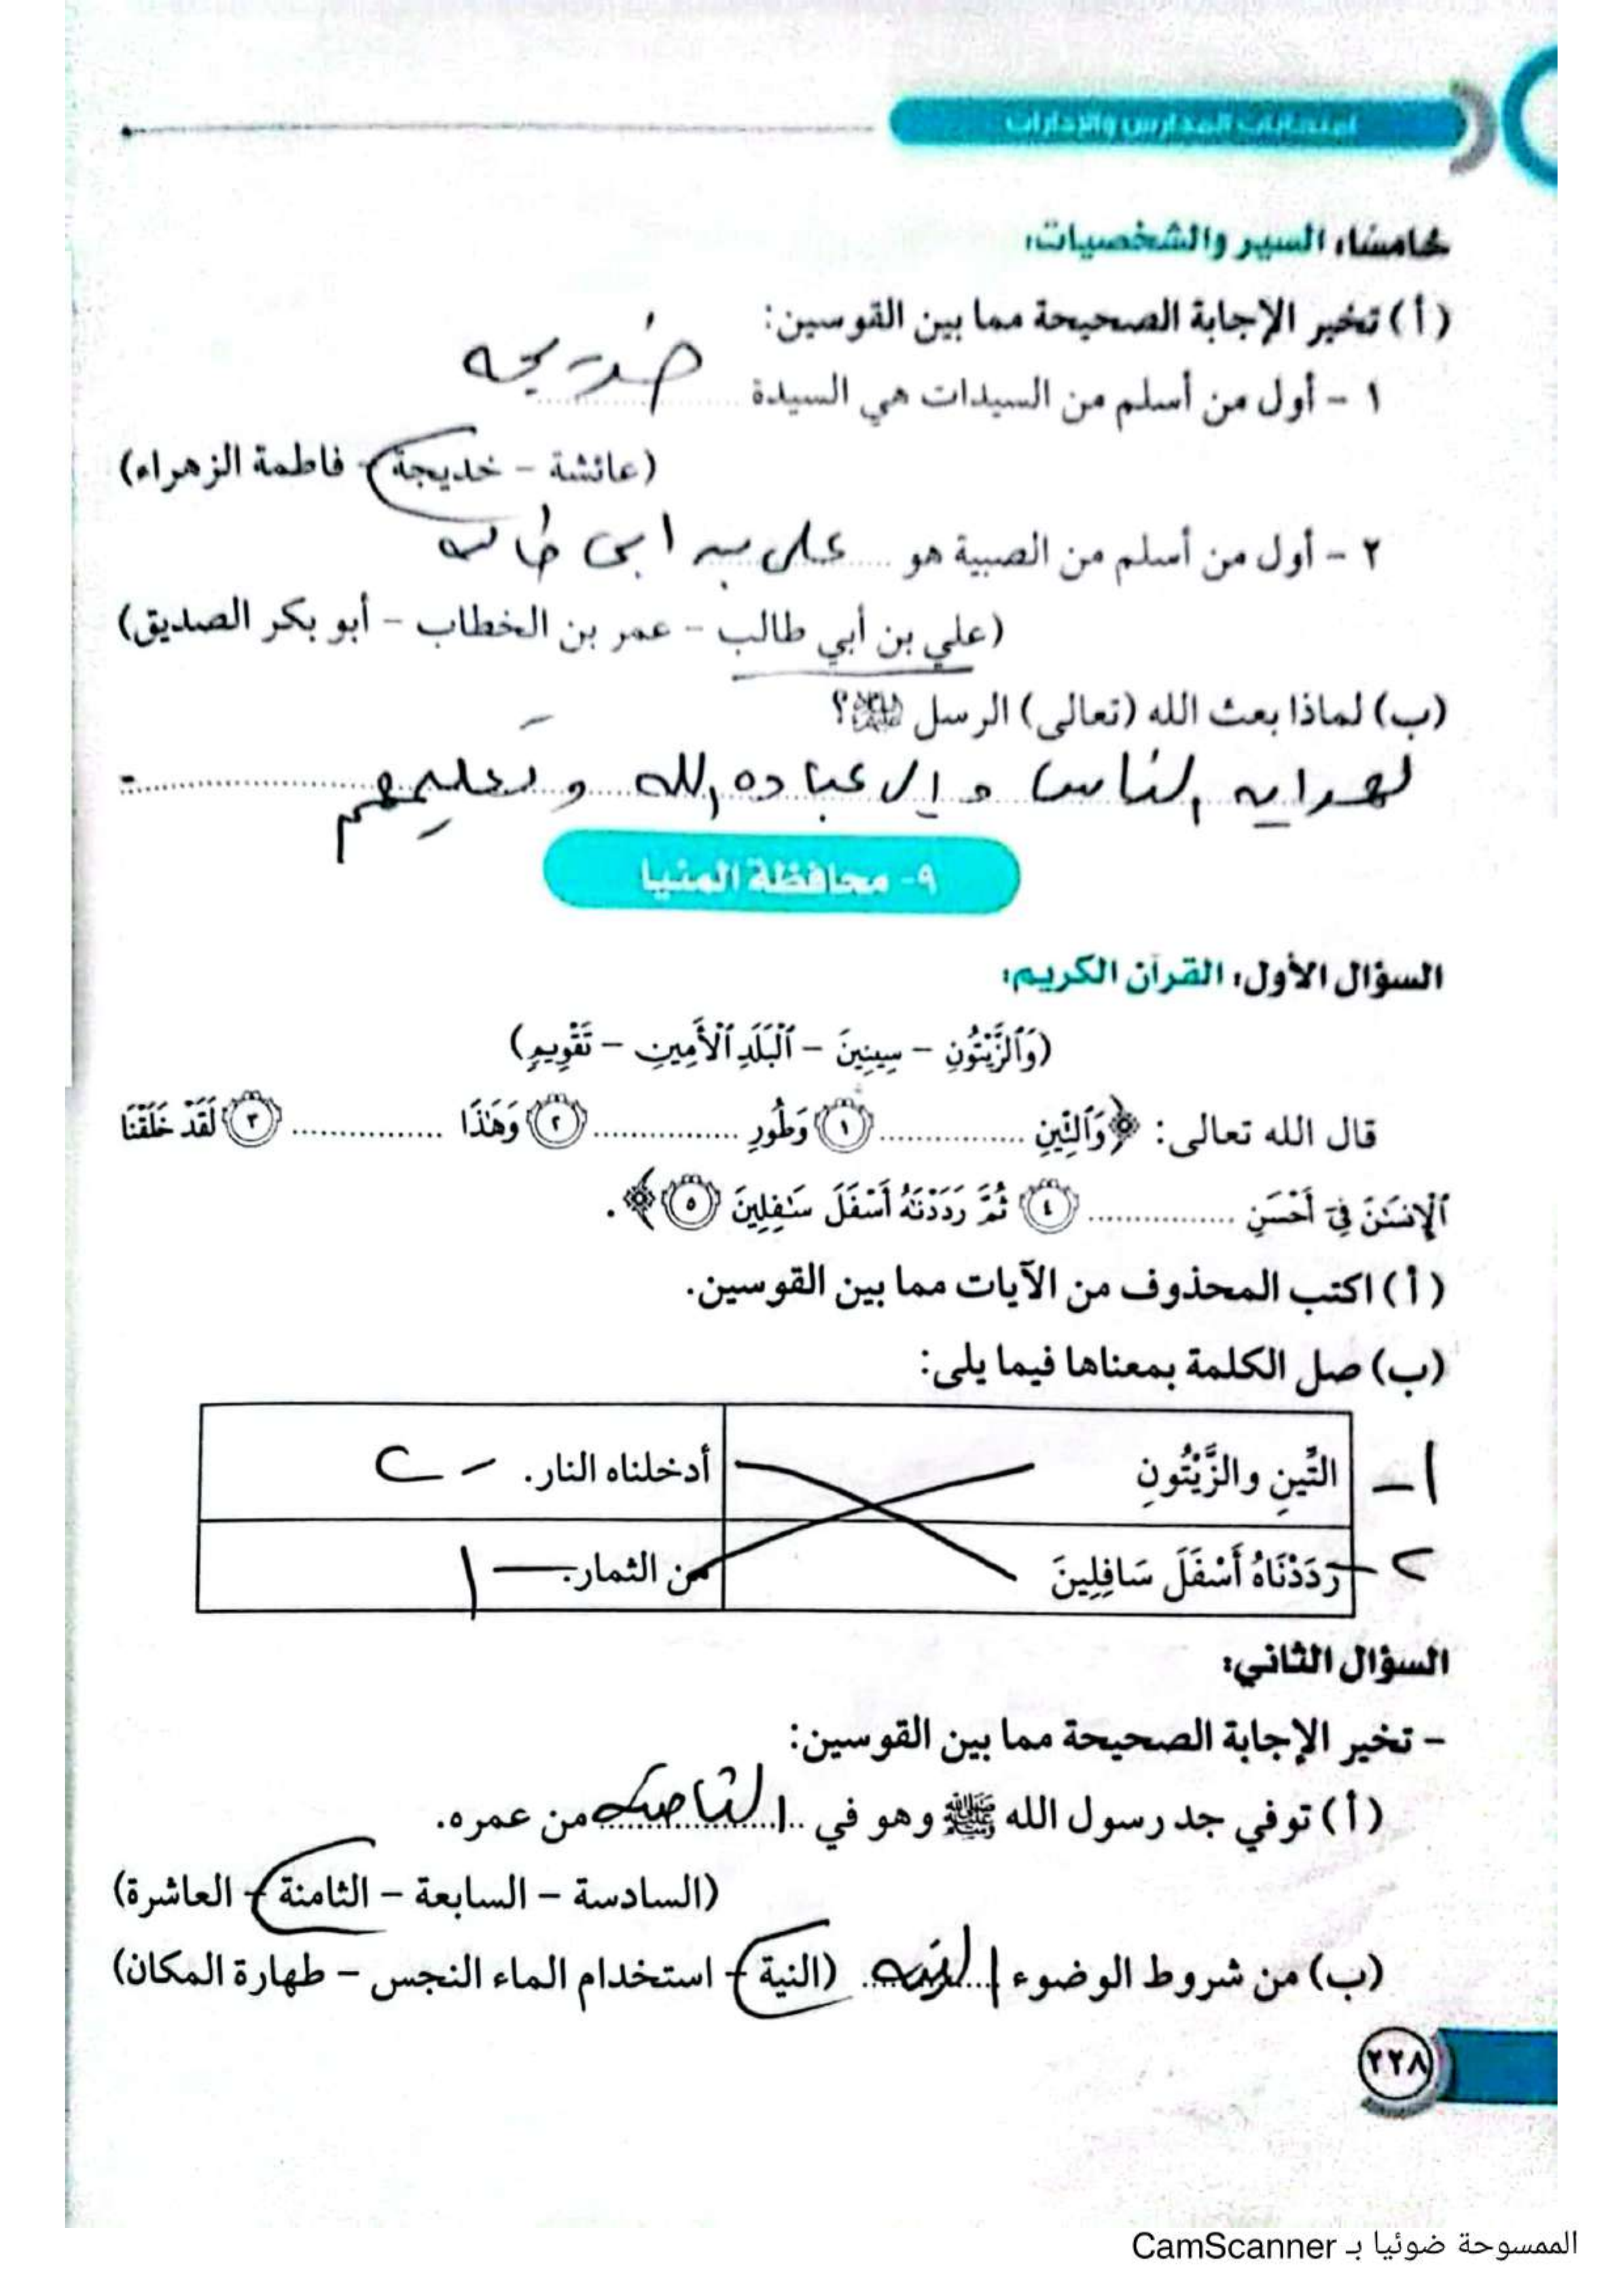 امتحانات المدارس والإدارات
خامسًا، السير والشخصيات:
(أ) تخير الإجابة الصحيحة مما بين القوسين:
١ - أول من أسلم من السيدات هي السيدة خديجه
(عائشة - خديجة - فاطمة الزهراء)
٢ - أول من أسلم من الصبية هو علي بن ابي طالب
(علي بن أبي طالب - عمر بن الخطاب - أبو بكر الصديق)
(ب) لماذا بعث الله (تعالى) الرسل ﷺ؟
لهدايه الناس و إلى عباده الله و تعليمهم
٩- محافظة المنيا
السؤال الأول: القرآن الكريم:
(وَٱلزَّيْتُونِ - سِينِينَ - ٱلْبَلَدِ ٱلْأَمِينِ - تَقْوِيمٍ)
قال الله تعالى: ﴿وَٱلتِّينِ .............. ١ وَطُورِ .............. ٢ وَهَٰذَا .............. ٣ لَقَدْ خَلَقْنَا
ٱلْإِنسَٰنَ فِىٓ أَحْسَنِ .............. ٤ ثُمَّ رَدَدْنَٰهُ أَسْفَلَ سَٰفِلِينَ ٥﴾.
(أ) اكتب المحذوف من الآيات مما بين القوسين.
(ب) صل الكلمة بمعناها فيما يلى:
١- التِّينِ والزَّيْتُونِ أدخلناه النار. - ٢
٢- رَدَدْنَاهُ أَسْفَلَ سَافِلِينَ من الثمار. - ١
السؤال الثاني:
- تخير الإجابة الصحيحة مما بين القوسين:
(أ) توفي جد رسول الله ﷺ وهو في الثامنه من عمره.
(السادسة - السابعة - الثامنة - العاشرة)
(ب) من شروط الوضوء النيه (النية - استخدام الماء النجس - طهارة المكان)
٢٢٨
الممسوحة ضوئيا بـ CamScanner